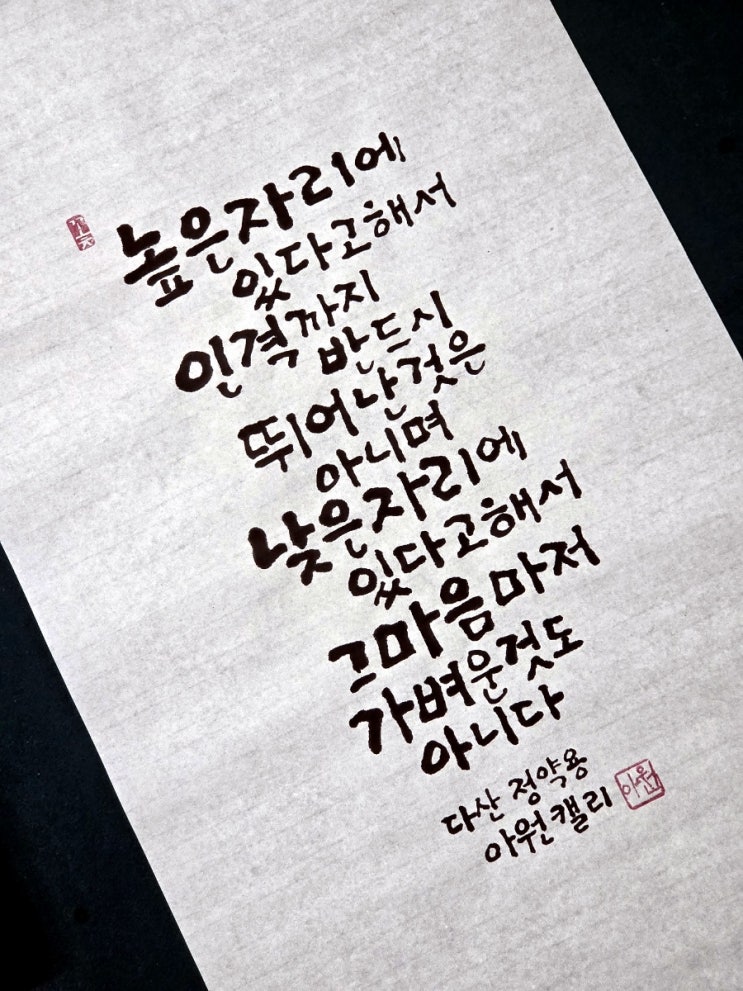 높은자리에
있다고해서
인격까지
반드시
뛰어난것은
아니며
낮은자리에
있다고해서
그마음마저
가벼운것도
아니다
다산 정약용
아원캘리
아원